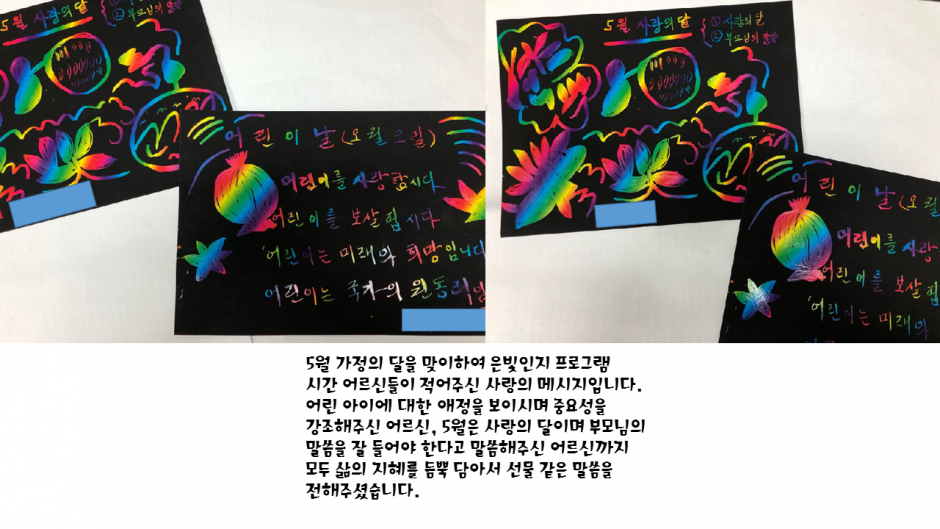 5월 사랑의 달
① 사랑의 달
② 부모님의 말씀
어린이날(오월오일)
어린이를 사랑합시다
어린이를 보살핍시다
어린이는 미래의 희망입니다
어린이는 국가의 원동력
5월 사랑의 달
① 사랑의 달
② 부모님의 말씀
어린이날(오
어린이를 사랑
어린이를 보살핍
어린이는 미래의
5월 가정의 달을 맞이하여 은빛인지 프로그램
시간 어르신들이 적어주신 사랑의 메시지입니다.
어린 아이에 대한 애정을 보이시며 중요성을
강조해주신 어르신, 5월은 사랑의 달이며 부모님의
말씀을 잘 들어야 한다고 말씀해주신 어르신까지
모두 삶의 지혜를 듬뿍 담아서 선물 같은 말씀을
전해주셨습니다.